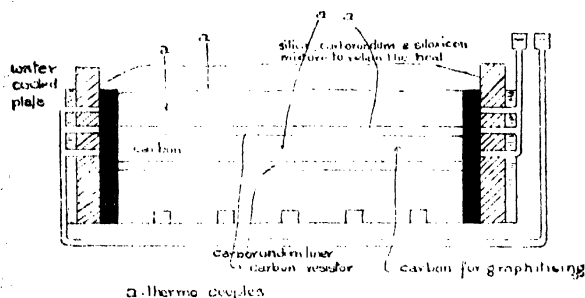 a a
a a
silica, carborundum & siloxicon
mixture to retain the heat
water
cooled
plate
carbon
carborundum liner
carbon resistor
carbon for graphitising
a. thermo couples